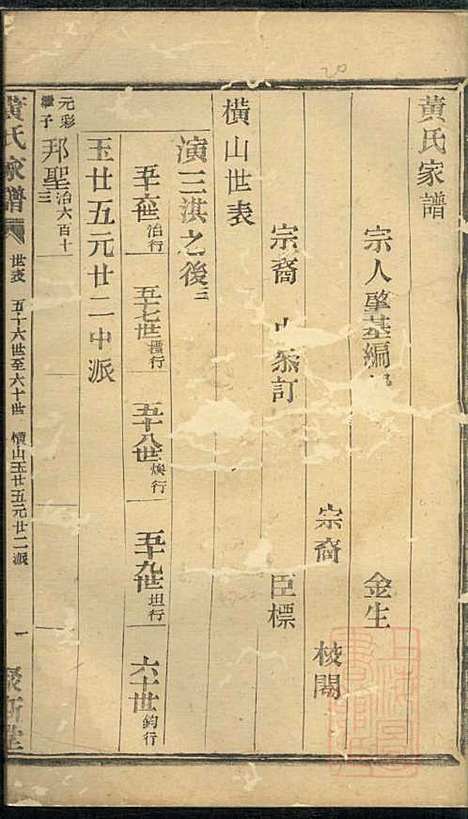 黃氏家譜
宗人肇基編
金生
宗裔
校閱
宗裔
參訂
臣標
橫山世表
演三淇之後三
五十六世治行
五十七世標行
五十八世煥行
五十九世坦行
六十世鈞行
玉廿五元廿二中派
元彩
繼子
邦聖治六百十三
黃氏家譜
世表
五十六世至六十世
橫山玉廿五元廿二派
一
20